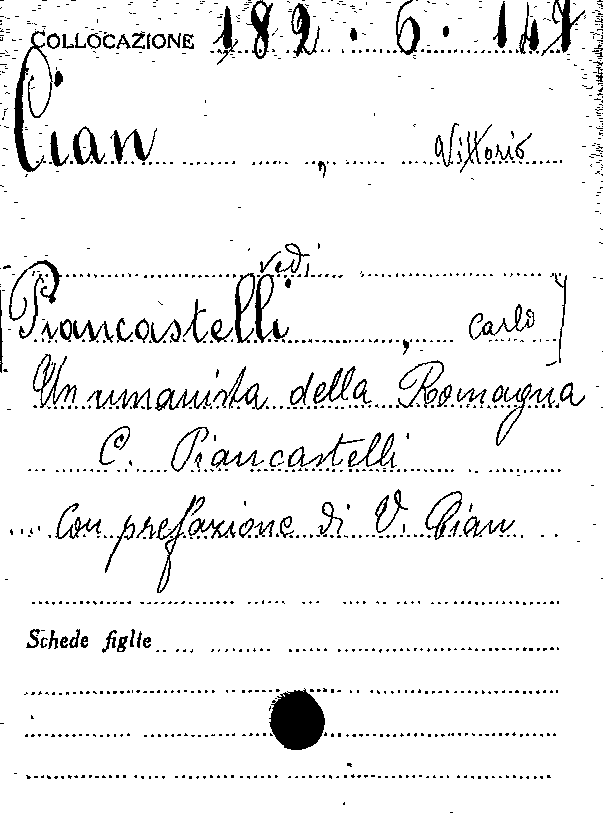 COLLOCAZIONE 182.6.147
Cian, Vittorio
vedi
[Piancastelli, Carlo]
Un umanista della Romagna
C. Piancastelli
... con prefazione di V. Cian
Schede figlie